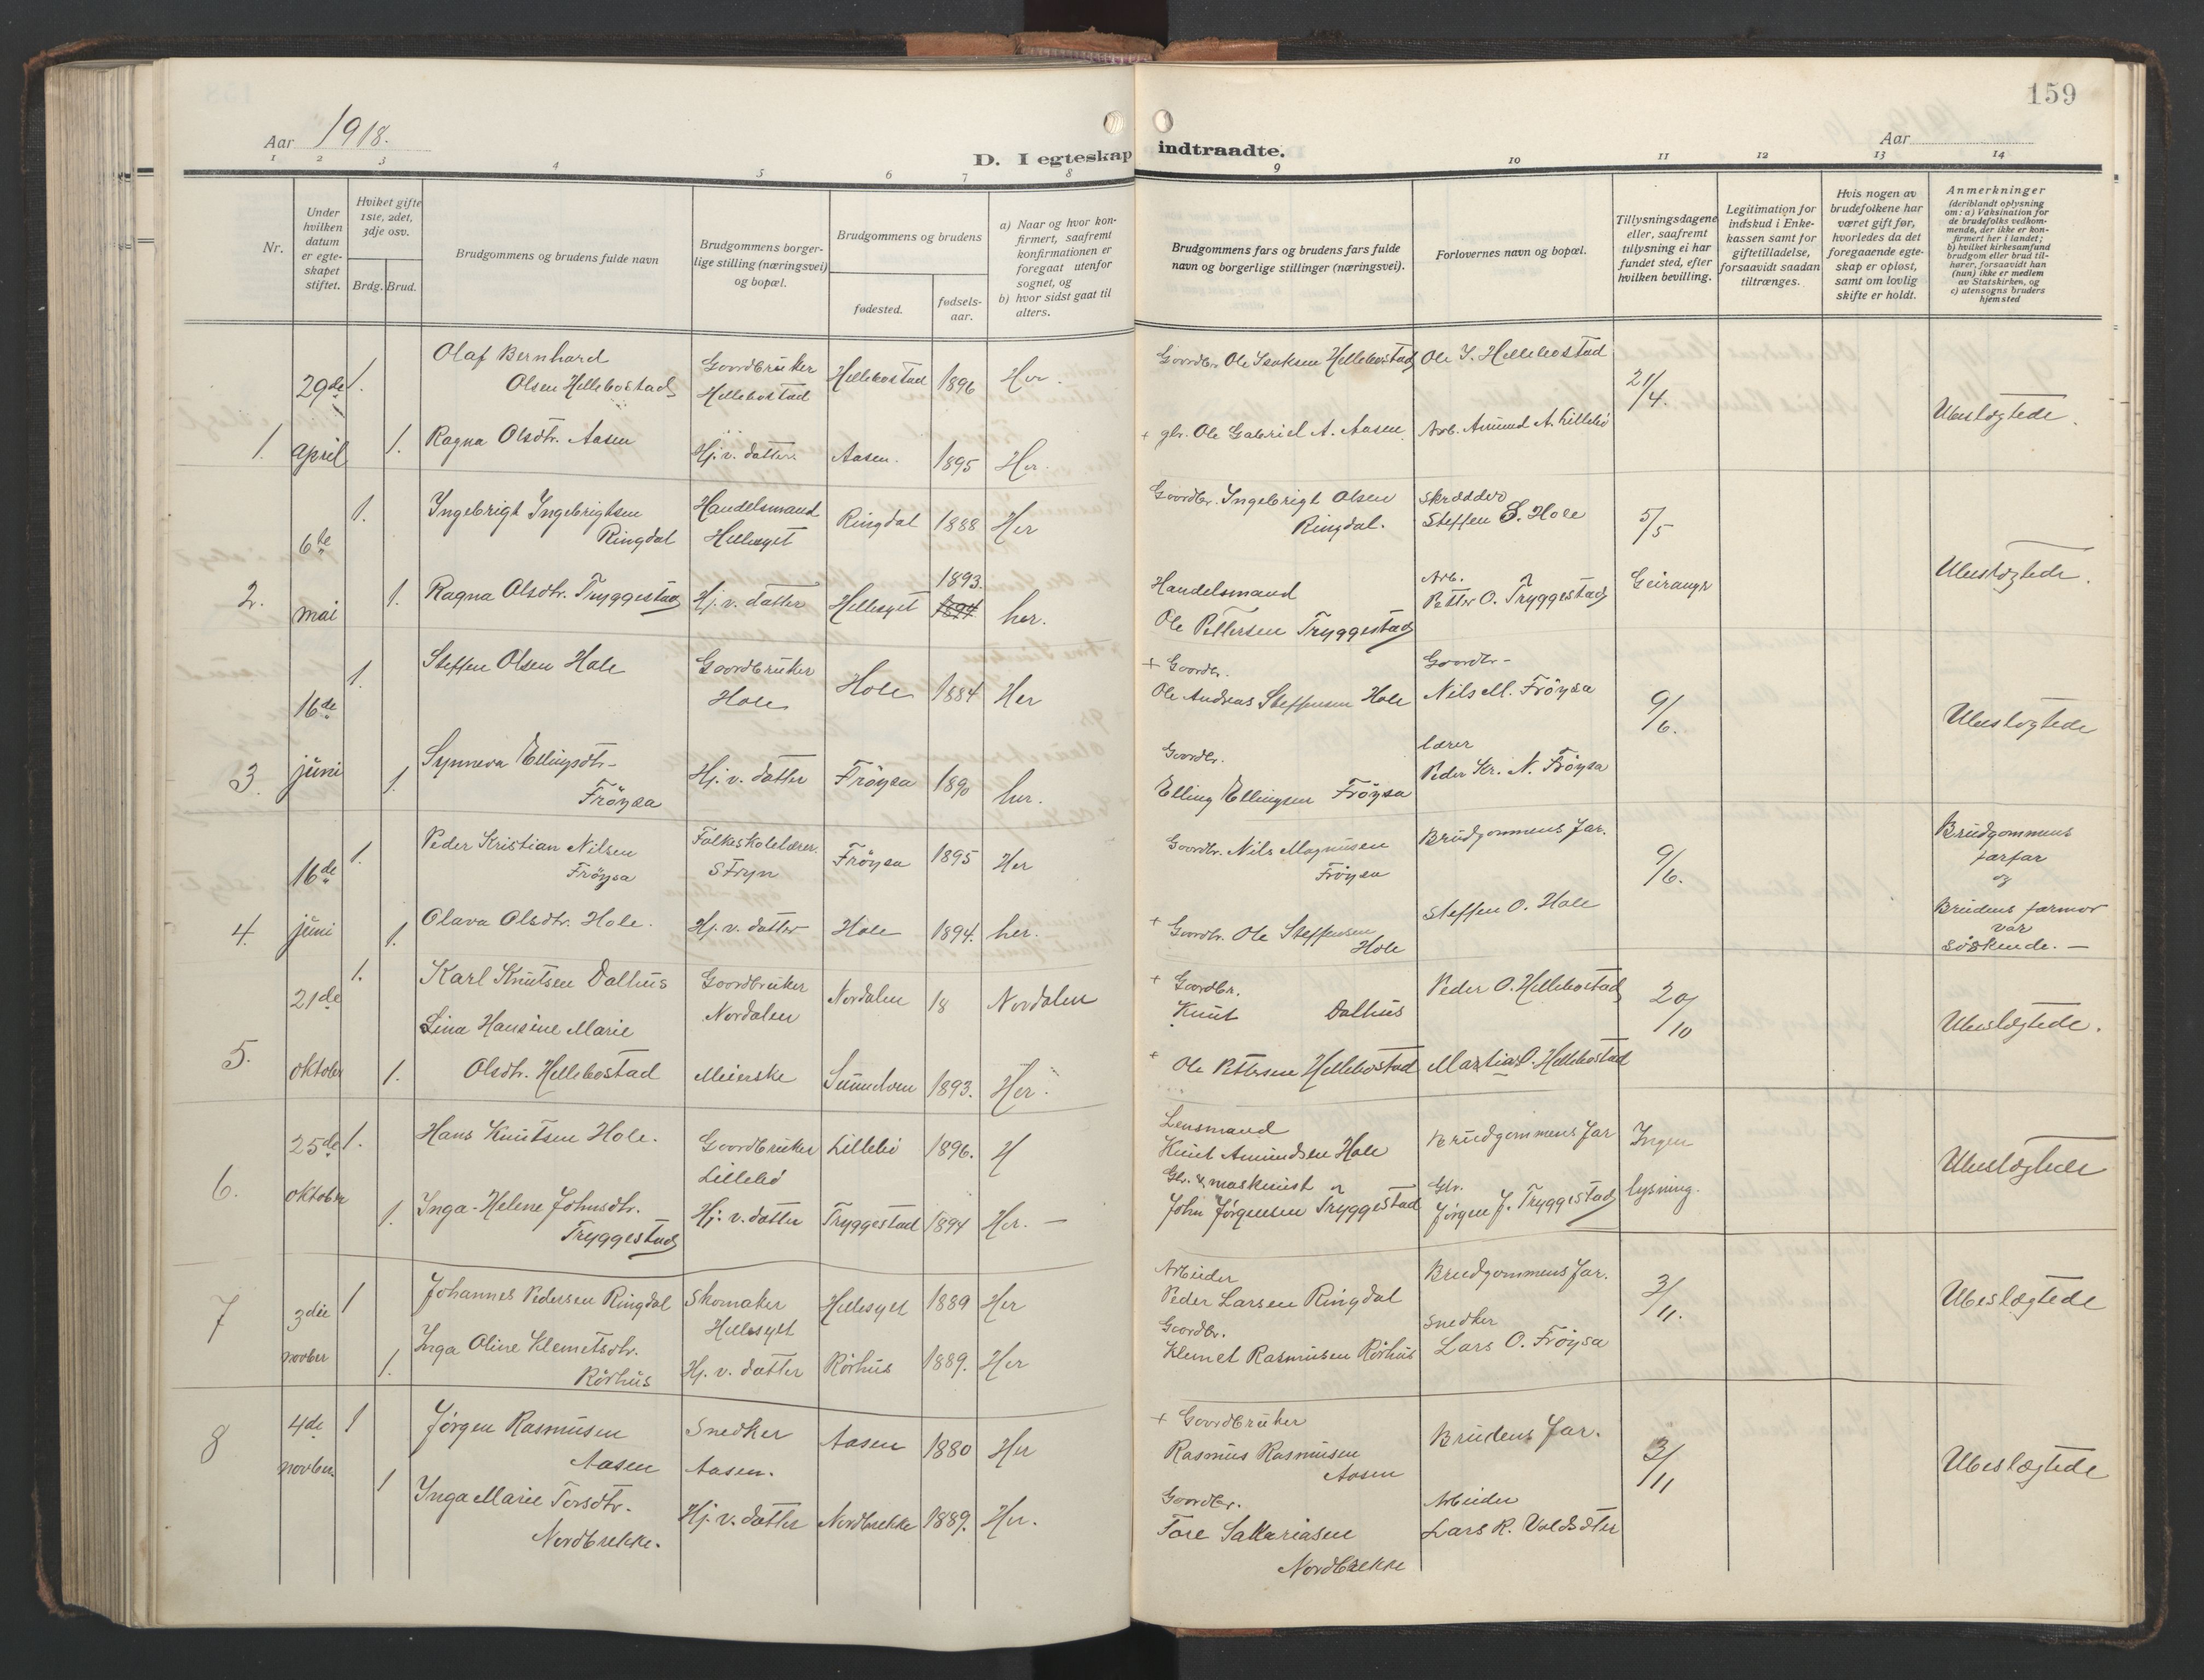 159
Aar 1918.
Aar
D. I egteskap indtraadte.
1 2 3 4 5 6 7 8 9 10 11 12 13 14
Nr.
Under hvilken datum er egte- skapet stiftet.
Hviket gifte 1ste, 2det, 3dje osv.
Brdg. Brud.
Brudgommens og brudens fulde navn
Brudgommens borger- lige stilling (næringsvei) og bopæl.
Brudgommens og brudens
fødested.
fødsels- aar.
a) Naar og hvor kon- firmert, saafremt konfirmationen er foregaat utenfor sognet, og
b) hvor sidst gaat til alters.
Brudgommens fars og brudens fars fulde navn og borgerlige stillinger (næringsvei).
Forlovernes navn og bopæl.
Tillysningsdagene eller, saafremt tillysning ei har fundet sted, efter hvilken bevilling.
Legitimation for indskud i Enke- kassen samt for giftetilladelse, forsaavidt saadan tiltrænges.
Hvis nogen av brudefolkene har været gift før, hvorledes da det foregaaende egte- skap er opløst, samt om lovlig skifte er holdt.
Anmerkninger (deriblandt oplysning om: a) Vaksination for de brudefolks vedkom- mende, der ikke er kon- firmert her i landet; b) hvilket kirkesamfund brudgom eller brud til- hører, forsaavidt han (hun) ikke er medlem av Statskirken, og c) utensogns bruders hjemsted
1. 29de april
1. Olaf Bernhard Olsen Hellebostad
Goardbruker Hellebostad
Hellebostad 1896 Her.
Goardbr. Ole Isaksen Hellebostad
Ole I. Hellebostad
21/4.
Ubeslægtede.
1. Ragna Olsdtr. Aasen
Hj. v. datter.
Aasen. 1895 Her.
+ gbr. Ole Gabriel A. Aasen
Arb. Amund A. Lillebö
2. 6te mai
1. Ingebrigt Ingebrigtsen Ringdal
Handelsmand Hellesylt
Ringdal 1888 Her
Goardbr. Ingebrigt Olsen Ringdal.
Skrædder Steffen S. Hole
5/5
Geiranger
Ubeslægtede.
1. Ragna Olsdtr. Tryggestad
Hj. v. datter
Hellesylt 1893. 1894 her.
Handelsmand
Ole Pettersen Tryggestad
Arb.
Petter O. Tryggestad
3. 16de juni
1. Steffen Olsen Hole
Goardbruker Hole
Hole 1884 Her
+ Goardbr.
Ole Andreas Steffensen Hole
Goardbr-
Nils M. Fröysa
9/6.
Ubeslægtede
1. Synneva Ellingsdtr- Fröysa
Hj. v. datter
Fröysa 1890 her.
Goardbr.
Elling Ellingsen Fröysa
lærer
Peder Kr. N. Fröysa
4. 16de juni
1. Peder Kristian Nilsen Fröysa
Folkeskolelærer. Stryn
Fröysa 1895 Her
Goardbr. Nils Magnusen Fröysa
Brudgommens far.
9/6.
Brudgommens farfar og Brudens farmor var söskende. —
1. Olava Olsdtr. Hole.
Hj. v. datter
Hole 1894. her.
+ Goardbr. Ole Steffensen Hole
Steffen O. Hole
5. 21de oktober
1. Karl Knutsen Dalhus
Goardbruker Nordalen
Nordalen 18 Nordalen
+ Goardbr.
Knut Dalhus
Peder O. Hellebostad
20/10
Ubeslægtede.
1. Lina Hansine Marie Olsdtr. Hellebostad
Meierske
Sunnelven 1893. Her.
+ Ole Pettersen Hellebostad
Martias O. Hellebostad
6. 25de oktober
1. Hans Knutsen Hole.
Goardbruker Lillebö
Lillebö 1896. H
Lensmand
Knut Amundsen Hole
Brudgommens far
Ingen lysning.
Ubeslægtede
1. Inga-Helene Johnsdtr. Tryggestad
Hj. v. datter
Tryggestad 1894 Her. —
Gbr. & maskinist
John Jørgensen Tryggestad
Gbr.
Jørgen J. Tryggestad
7 3die novber
1 Johannes Pedersen Ringdal
Skomaker Hellesylt
Hellesylt 1889 Her
Arbeider
Peder Larsen Ringdal
Brudgommens far.
3/11.
Ubeslægtede
1. Inga Oline Klemetsdtr. Rörhus
Hj. v. datter
Rörhus 1889. Her
Goardbr.
Klemet Rasmusen Rörhus
Snedker
Lars O. Fröysa
8 4de novber.
1 Jørgen Rasmusen Aasen
Snedker Aasen.
Aasen 1880 Her
+ Goardbruker
Rasmus Rasmusen Aasen
Brudens far.
3/11
Ubeslægtede
1 Inga Marie Torsdtr. Nordbrekke.
Hj. v. datter
Nordbrekke 1889. Her.
Goardbr.
Tore Sakariasen Nordbrekke
Arbeider
Lars R.